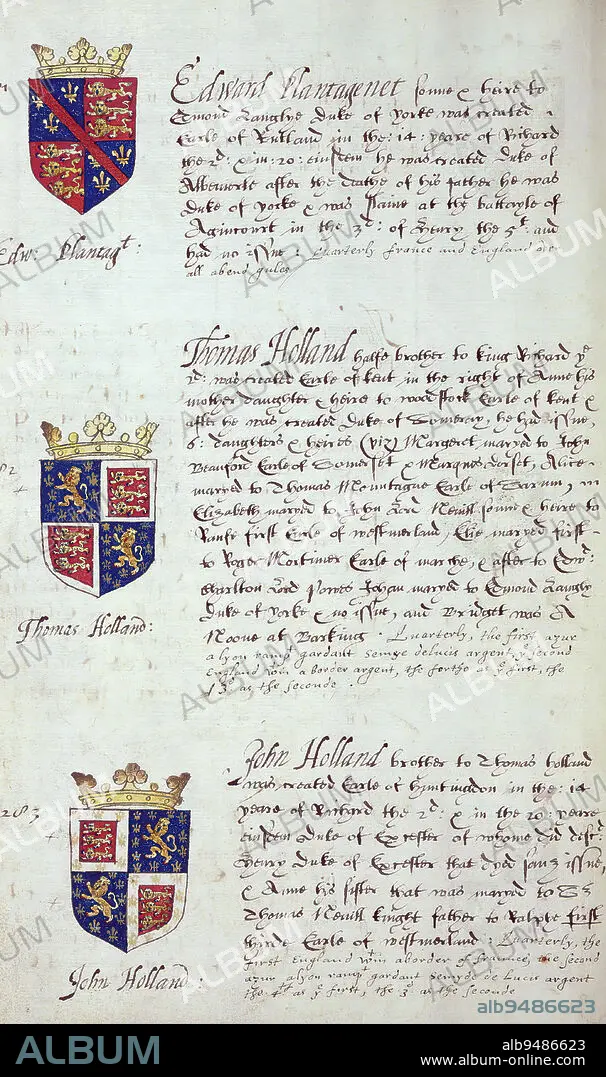 Edward Plantagenet sonne & heire to
Edmond Langlye Duke of Yorke was created
Earle of Rutland in the: 14: yeare of Richard
the 2d: & in: 20: eiusdem he was created Duke of
Albemerle after the deathe of his father he was
Duke of Yorke & was slaine at the battayle of
Agincourt in the 3d: of Henry the 5t: and
had no issue: Quarterly france and England over
all abend gules
Edw: Plantagt:
Thomas Holland halfe brother to king Richard ye
2d: was created Earle of kent in the right of Anne his
mother daughter & heire to woodstock Earle of kent &
after he was created Duke of Surrey, he had issue,
6: daughters & heires (viz) Margeret maryed to John
Beauford Earle of Somerset & Marques dorset, Alice
maryed to Thomas Mountague Earle of Sarum,
Elizabeth maryed to John Lord Nevill sonne & heire to
Raufe first Earle of westmerland, Elie maryed first
to Roger Mortimer Earle of marche, & after to Edw:
charlton Lord Powes Johan maryed to Edmond Langly
Duke of Yorke & no issue, and Bridget was A
Noone at Barking: Quarterly, the first azur
a lyon rampt gardant semye delucis argent ye second
England wtin a border argent, the forthe as ye first, the
3d as the seconde:
82
Thomas Holland:
John Holland brother to Thomas holland
was created Earle of huntingdon in the: 14
yeare of Richard the 2d: & in the 20: yeare
eiusdem Duke of Excester of whome did disc:
Henry Duke of Excester that dyed sans issue,
& Anne his sister that was maryed to Sr
Thomas Nevill knight father to Ralphe first
third Earle of westmerland: Quarterly, the
first England wtin aborder of france, the second
azur alyon rampt gardant semye de Lucis argent
the 4t as ye first, the 3d as the seconde
283
John Holland:
ALBUM
alb9486623
alb9486623
www.album-online.com